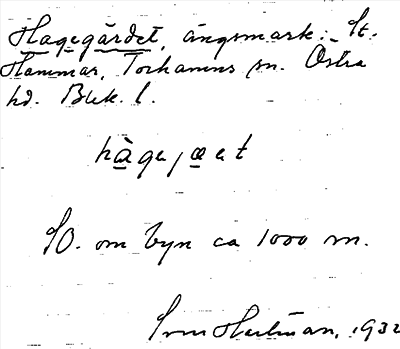 Hagegärdet, ängsmark. St.
Hammar, Torhamns sn. Östra
hd. Blek. l.
hàgejæet
SO. om byn ca 1000 m.
Hartman, 1932